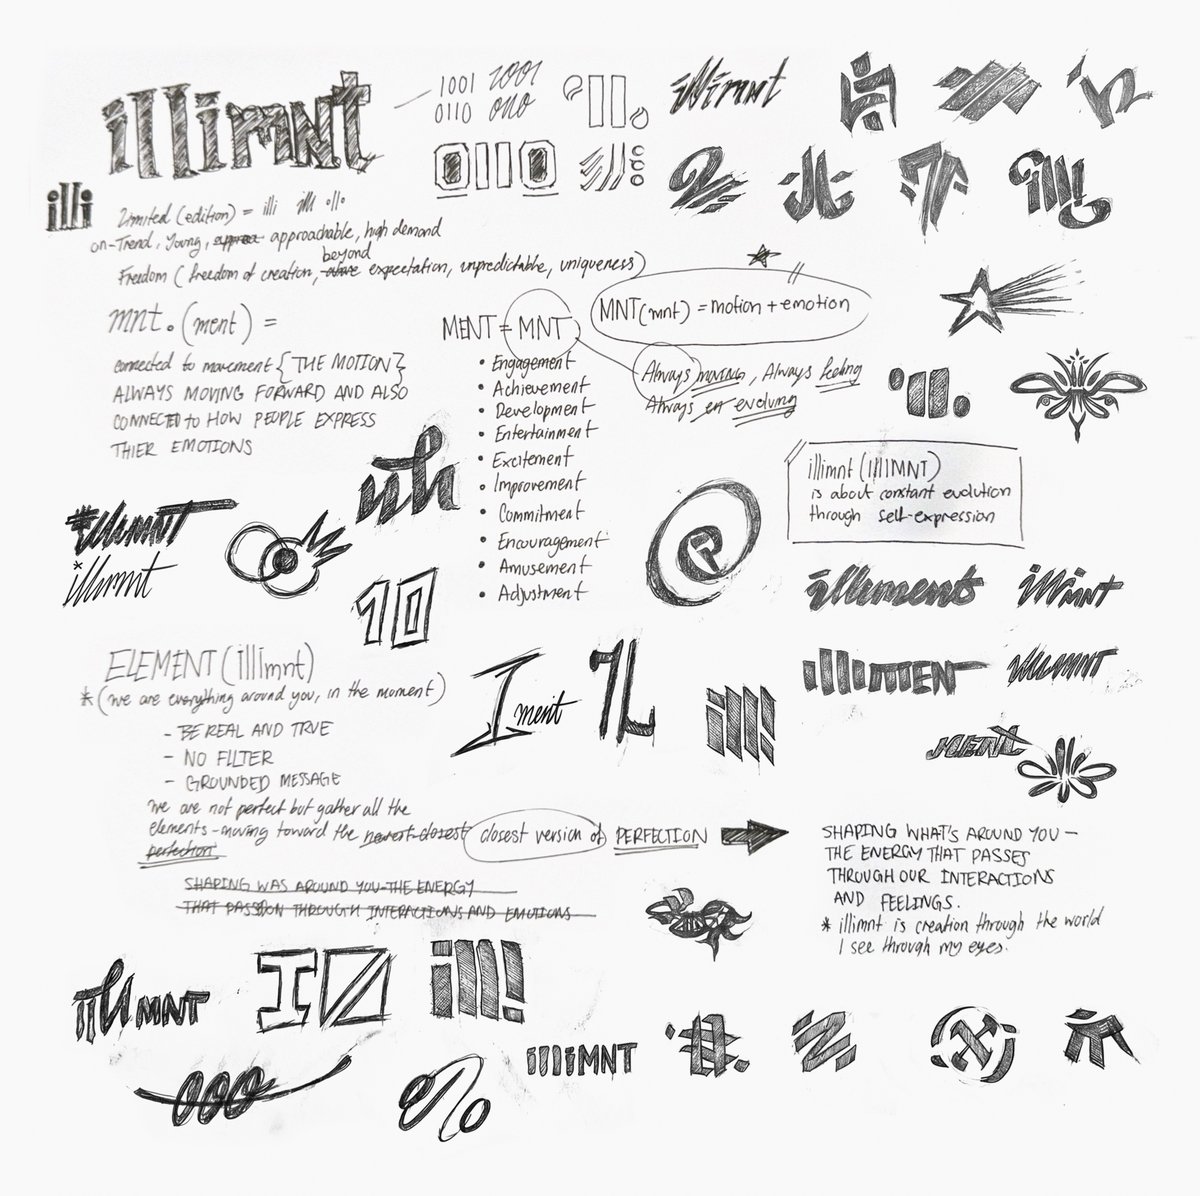 illimnt
1001 1001
0110 0110
illimnt
0110
illi
Limited (edition) = illi illi 0110
on-Trend, Young, approa approachable, high demand
beyond
Freedom (freedom of creation, above expectation, unpredictable, uniqueness)
mnt. (ment) =
connected to movement {THE MOTION}
ALWAYS MOVING FORWARD AND ALSO
CONNECTED TO HOW PEOPLE EXPRESS
THIER EMOTIONS
MENT = MNT
• Engagement
• Achievement
• Development
• Entertainment
• Excitement
• Improvement
• Commitment
• Encouragement
• Amusement
• Adjustment
MNT (mnt) = motion + emotion
Always moving, Always feeling
Always en evolving
illimnt (IllIMNT)
is about constant evolution
through self-expression
illimnt
illimnt
10
illiment
illimnt
ELEMENT (illimnt)
* (we are everything around you, in the moment)
- BE REAL AND TRUE
- NO FILTER
- GROUNDED MESSAGE
We are not perfect but gather all the
elements - moving toward the newest closest closest version of PERFECTION
perfection
SHAPING WAS AROUND YOU-THE ENERGY
THAT PASSION THROUGH INTERACTIONS AND EMOTIONS
I ment
ill!
illimnt
MENT
SHAPING WHAT'S AROUND YOU -
THE ENERGY THAT PASSES
THROUGH OUR INTERACTIONS
AND FEELINGS.
* illimnt is creation through the world
I see through my eyes.
illiMNT
ill!
illiMNT